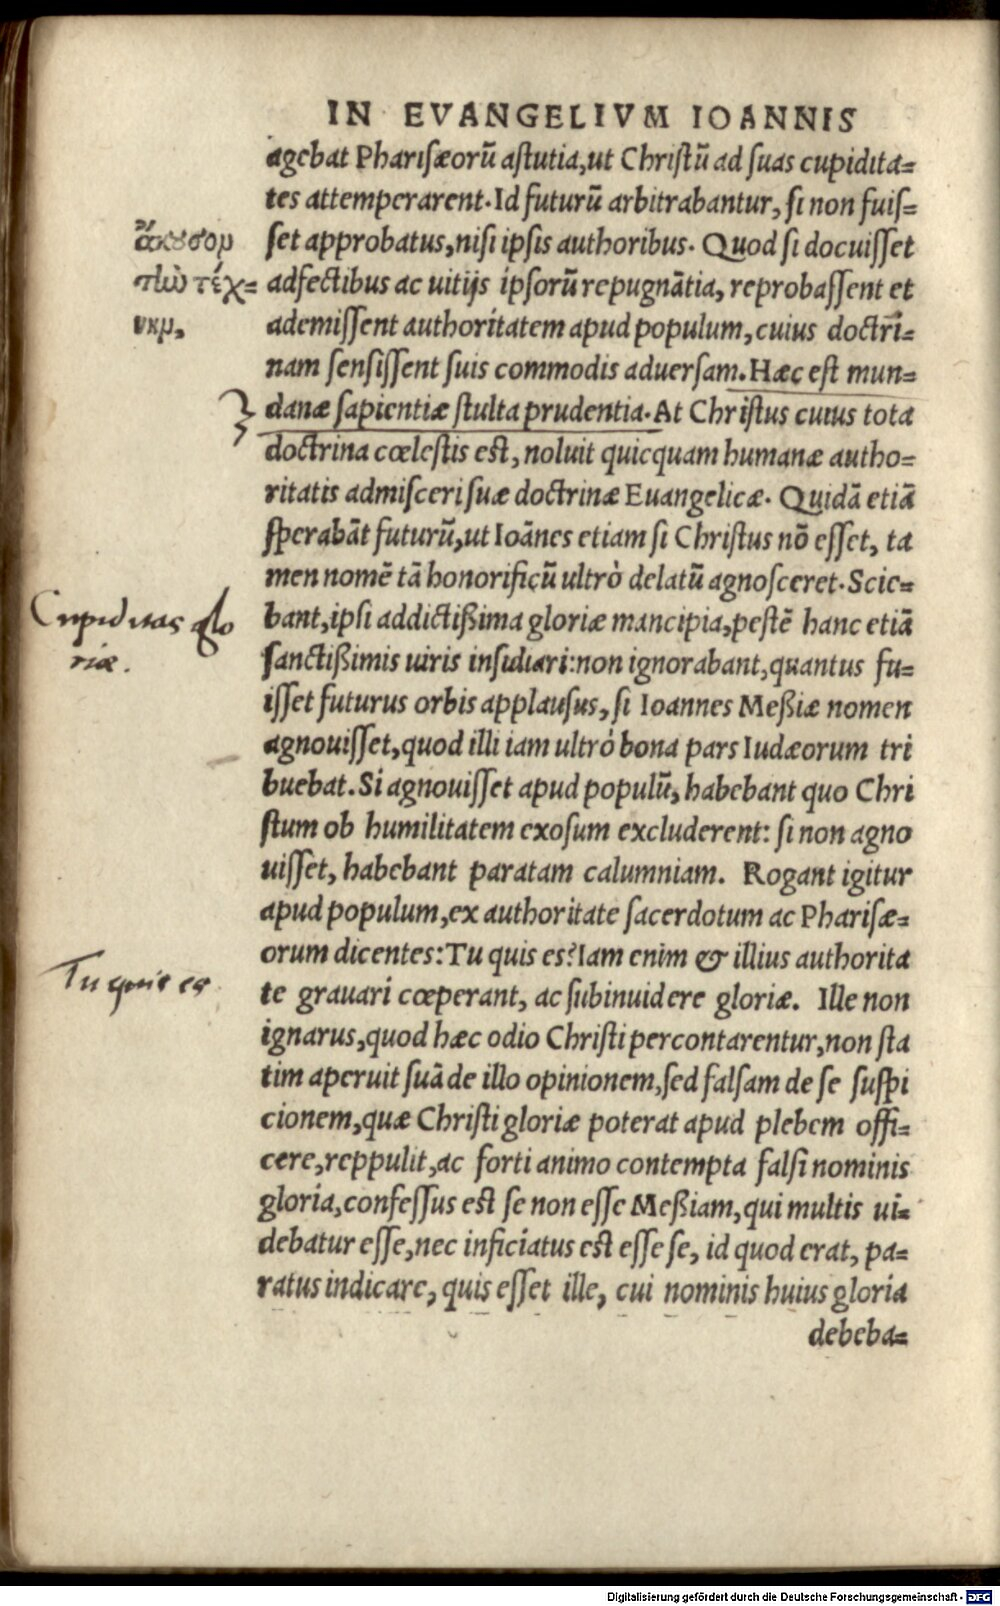 IN EVANGELIVM IOANNIS
agebat Pharisæorū astutia, ut Christū ad suas cupidita=
tes attemperarent. Id futurū arbitrabantur, si non fuis=
set approbatus, nisi ipsis authoribus. Quod si docuisset
adfectibus ac uitijs ipsorū repugnātia, reprobassent et
ademissent authoritatem apud populum, cuius doctri=
nam sensissent suis commodis aduersam. Hæc est mun=
danæ sapientiæ stulta prudentia. At Christus cuius tota
doctrina cœlestis est, noluit quicquam humanæ autho=
ritatis admisceri suæ doctrinæ Euangelicæ. Quidā etiā
sperabāt futurū, ut Ioānes etiam si Christus nō esset, ta
men nomē tā honorificū ultrò delatū agnosceret. Scie=
bant, ipsi addictißima gloriæ mancipia, pestē hanc etiā
sanctißimis uiris insidiari: non ignorabant, quantus fu=
isset futurus orbis applausus, si Ioannes Meßiæ nomen
agnouisset, quod illi iam ultrò bona pars Iudæorum tri
buebat. Si agnouisset apud populū, habebant quo Chri
stum ob humilitatem exosum excluderent: si non agno
uisset, habebant paratam calumniam. Rogant igitur
apud populum, ex authoritate sacerdotum ac Pharisæ=
orum dicentes: Tu quis es? Iam enim & illius authorita
te grauari cœperant, ac subinuidere gloriæ. Ille non
ignarus, quod hæc odio Christi percontarentur, non sta
tim aperuit suā de illo opinionem, sed falsam de se suspi
cionem, quæ Christi gloriæ poterat apud plebem offi=
cere, reppulit, ac forti animo contempta falsi nominis
gloria, confessus est se non esse Meßiam, qui multis ui=
debatur esse, nec inficiatus est esse se, id quod erat, pa=
ratus indicare, quis esset ille, cui nominis huius gloria
debeba=
τέχ=
Cupiditas glo
riæ.
Tu quis es
Digitalisierung gefördert durch die Deutsche Forschungsgemeinschaft - DFG